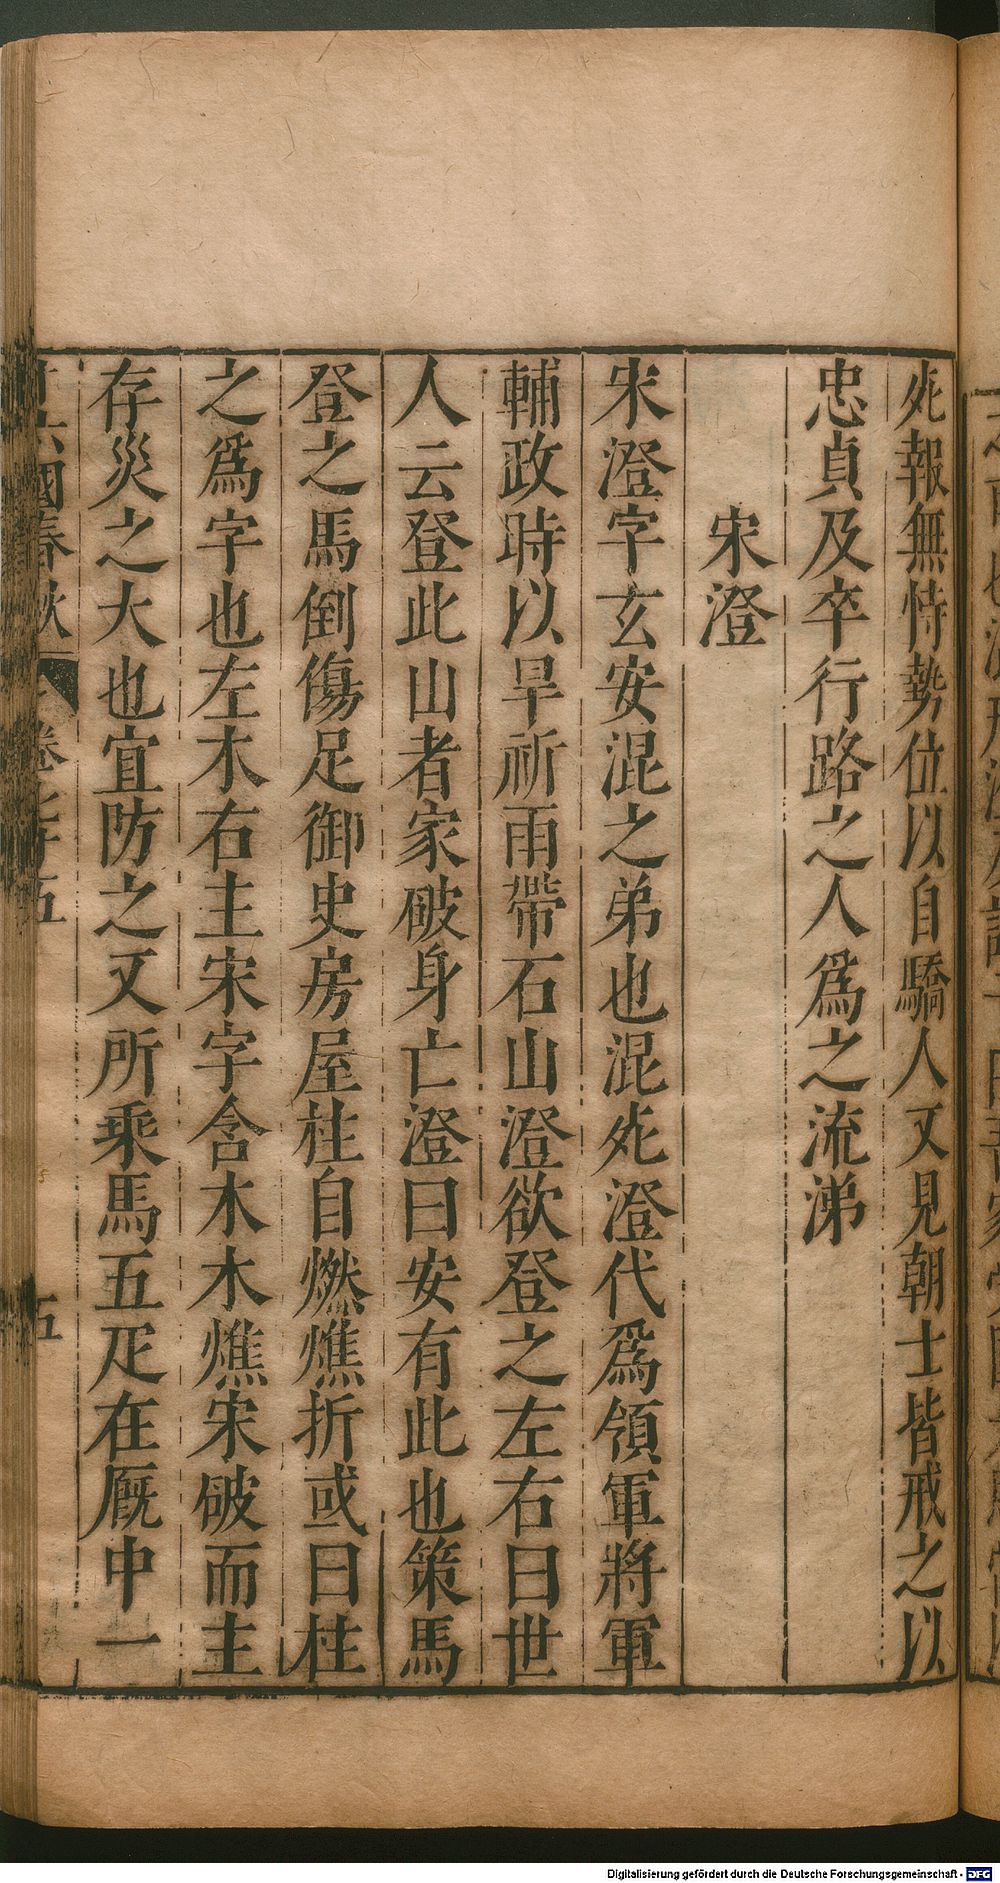 死報無恃勢位以自驕人又見朝士皆戒之以
忠貞及卒行路之人爲之流涕
宋澄
宋澄字玄安混之弟也混死澄代爲領軍將軍
輔政時以旱祈雨帶石山澄欲登之左右曰世
人云登此山者家破身亡澄曰安有此也策馬
登之馬倒傷足御史房屋柱自燃燋折或曰柱
之爲字也左木右主宋字含木木燋宋破而主
存災之大也宜防之又所乘馬五疋在厩中一
六國春秋 卷七十五 五
Digitalisierung gefördert durch die Deutsche Forschungsgemeinschaft - DFG